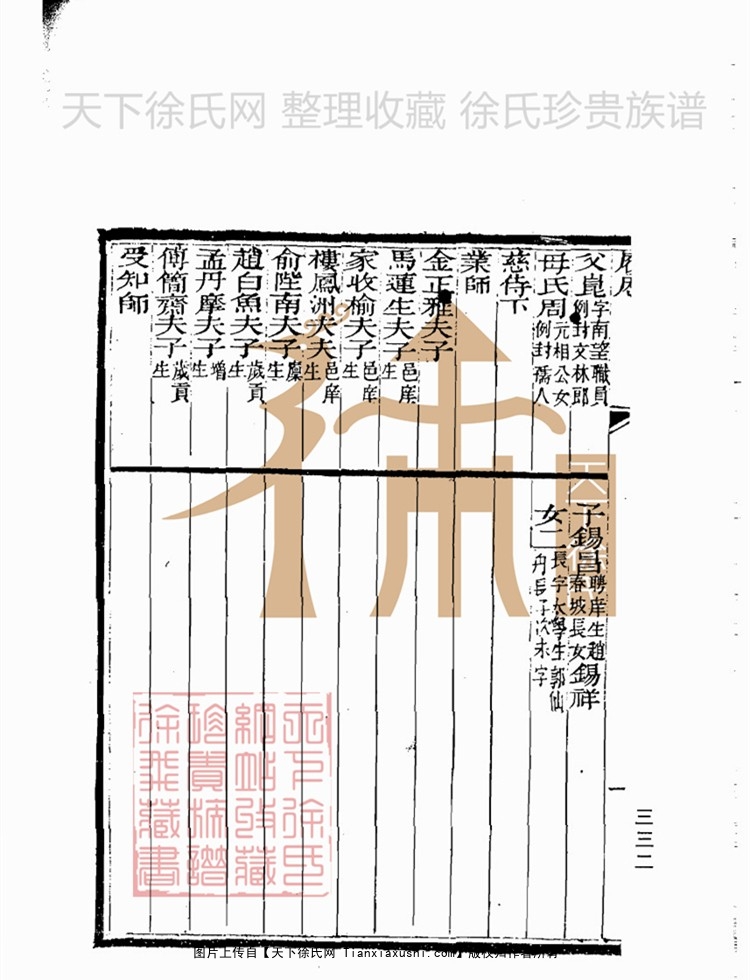 天下徐氏网 整理收藏 徐氏珍贵族谱
父崑字南望職員例封文林郎
母氏周元相公女例封孺人
慈侍下
業師
金正雅夫子
馬蓮生夫子邑庠生
家收榆夫子邑庠生
樓鳳洲夫夫邑庠生
俞陛南夫子廩生
趙白魚夫子歲貢生
孟丹摩夫子增生
傅簡齋夫子歲貢生
受知師
子錫昌聘庠生趙春坡長女錫祥
女二長字太學生郭仙舟長子次未字
一
三三二
天下徐氏
網站收藏
珍貴族譜
徐氏藏書
图片上传自【天下徐氏网 tianxiaxushi.com】版权归作者所有